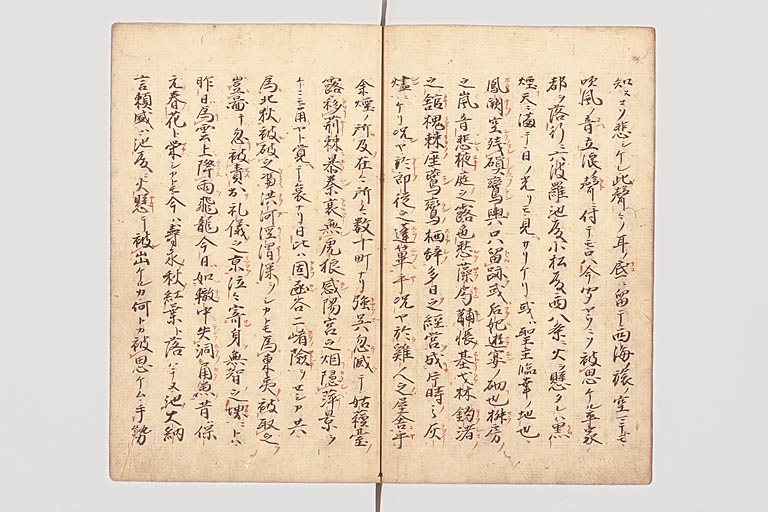 知コソ悲シケレ此聲々ノ耳ノ底ニ留テ西海ノ旅ノ空ニテモ
吹風ノ音立浪ノ聲ニ付テモ只今聞ヤウニコソ被思ケレ平家
都ヲ落行ニ六波羅池殿小松殿西八条ニ火ヲ懸タレハ黒
煙天ニ満テ日ノ光リモ見ヘサリケリ或聖主臨幸ノ地也
鳳闕空残礎鸞輿只留跡或后妃遊宴ノ砌也椒房
之嵐音悲掖庭之露色愁藻扃黼帳基弋林釣渚
之舘槐棘座鵷鸞栖辞多日之経営成片時之灰
燼ニケリ況ヤ於郎従之蓬蓽乎況ヤ於雜人之屋舎乎
余煙ノ所及在々所々数十町ナリ強呉忽滅テ姑蘓臺
露移荊棘暴秦衰無虎狼咸陽宮之烟隠睥睨ヲ
ケムモ角ヤト覚テ哀ナリ日比ハ函谷二崤險シセシカ共
為北狄被破之今洪河涇渭深シシカトモ為東夷被取之
豈啚キ忽被責出礼儀之京泣々寄身無智之境ニトハ
昨日為雲上降雨飛龍今日如轍中失洞魚昔保
元春花ト榮シカトモ今ハ壽永秋紅葉ト落ハテヌ池大納
言頼盛ハ池殿ニ火懸テ被出ケルカ何トカ被思ケム手勢